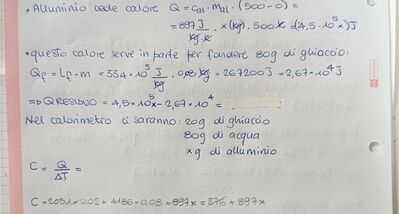 • Alluminio cede calore Q = Cal · Mal · (500-0) =
= 897 J/kg·K · x (kg) · 500 K = (4,5 · 10⁵ x) J
• questo calore serve in parte per fondere 80g di ghiaccio:
Qf = Lf · m = 334 · 10³ J/kg · 0,08 kg = 267200 J = 2,67 · 10⁴ J
⇒ Q RESIDUO = 4,5 · 10⁵x - 2,67 · 10⁴ =
Nel calorimetro ci saranno: 20g di ghiaccio
80g di acqua
x g di alluminio
C = Q/ΔT =
C = 2051 · 0,02 + 4186 · 0,08 + 897x = 376 + 897x